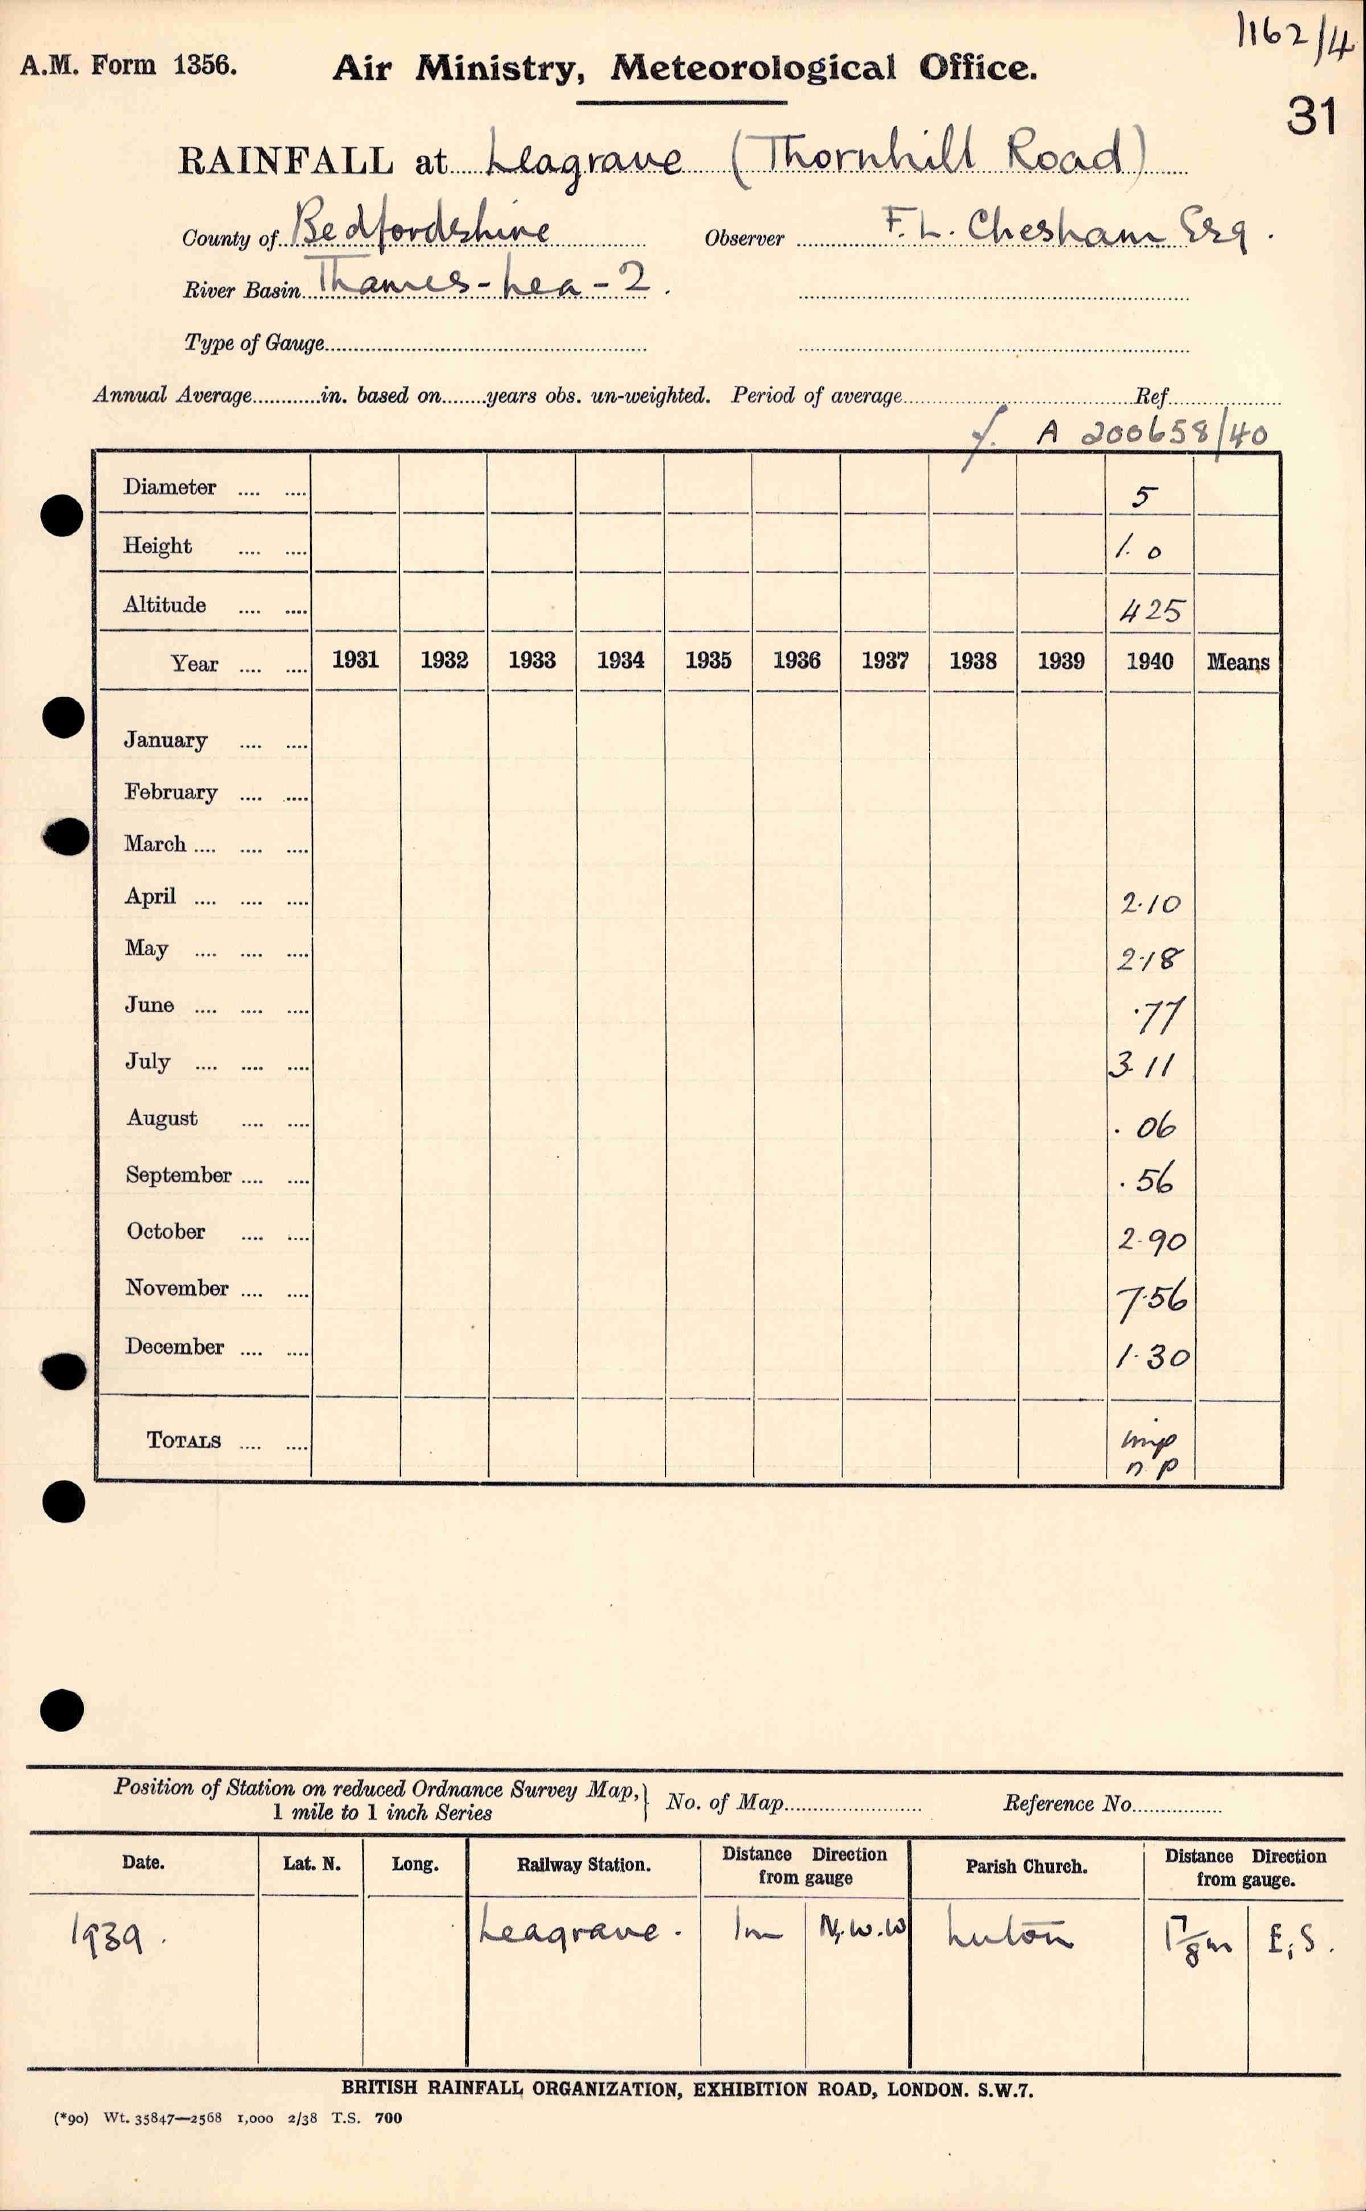 1162/4
A.M. Form 1356.
Air Ministry, Meteorological Office.
31
RAINFALL at Leagrave (Thornhill Road)
County of Bedfordshire Observer F. L. Chesham Esq.
River Basin Thames-Lea-2.
Type of Gauge
Annual Average in. based on years obs. un-weighted. Period of average Ref
A 200658/40
Diameter 5
Height 1.0
Altitude 425
Year 1931 1932 1933 1934 1935 1936 1937 1938 1939 1940 Means
January
February
March
April 2.10
May 2.18
June .77
July 3.11
August .06
September .56
October 2.90
November 7.56
December 1.30
TOTALS imp
n p
Position of Station on reduced Ordnance Survey Map,
1 mile to 1 inch Series
No. of Map Reference No.
Date. Lat. N. Long. Railway Station. Distance Direction from gauge Parish Church. Distance Direction from gauge.
1939. Leagrave. 1m N.W.W Luton 1 7/8 m E,S.
BRITISH RAINFALL ORGANIZATION, EXHIBITION ROAD, LONDON. S.W.7.
(*90) Wt. 35847—2568 1,000 2/38 T.S. 700